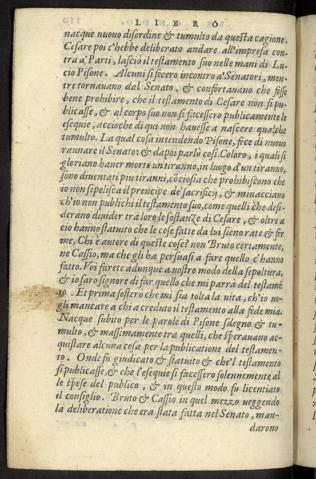 LIBRO
nacque nuouo disordine & tumulto da questa cagione.
Cesare poi c'hebbe deliberato andare all'impresa con-
tra a' Parti, lasciò il testamento suo nelle mani di Lu-
cio Pisone. Alcuni si fecero incontro a' Senatori, men-
tre tornauano dal Senato, & confortauano che fosse
bene prohibire, che il testamento di Cesare non si pu-
blicasse, & al corpo suo non si facessero publicamente le
esequie, accioche di qui non hauesse a nascere qualche
tumulto. La qual cosa intendendo Pisone, fece di nuouo
raunare il Senato: & dapoi parlò cosi. Coloro, i quali si
gloriano hauer morto un tiranno, in luogo d'un tiranno,
sono diuentati piu tiranni, cōciosia che prohibiscono che
io non sepelisca il prencipe de' sacrificij, & minacciano
ch'io non publichi il testamento suo, come quelli che desi-
derano diuider tra loro le sostanze di Cesare, & oltre a
ciò hanno statuito che le cose fatte da lui sieno rate & fir
me, Chi è autore di queste cose? non Bruto certamente,
ne Cassio, ma che gli ha persuasi a fare quello c'hanno
fatto. Voi farete adunque a uostro modo della sepoltura,
& io farò signore di far quello che mi parrà del testamē
to. Et prima sosterrò che mi sia tolta la uita, ch'io uo-
gli mancare a chi a creduto il testamento alla fede mia.
Nacque subito per le parole di Pisone sdegno & tu-
multo, & massimamente tra quelli, che sperauano ac-
quistare alcuna cosa per la publicatione del testamen-
to. Onde fu giudicato & statuito & che'l testamento
si publicasse, & che l'esequie si facessero solennemente al
le spese del publico, & in questo modo fu licentiato
il consiglio. Bruto & Cassio in quel mezzo ueggendo
la deliberatione che era stata fatta nel Senato, man-
darono